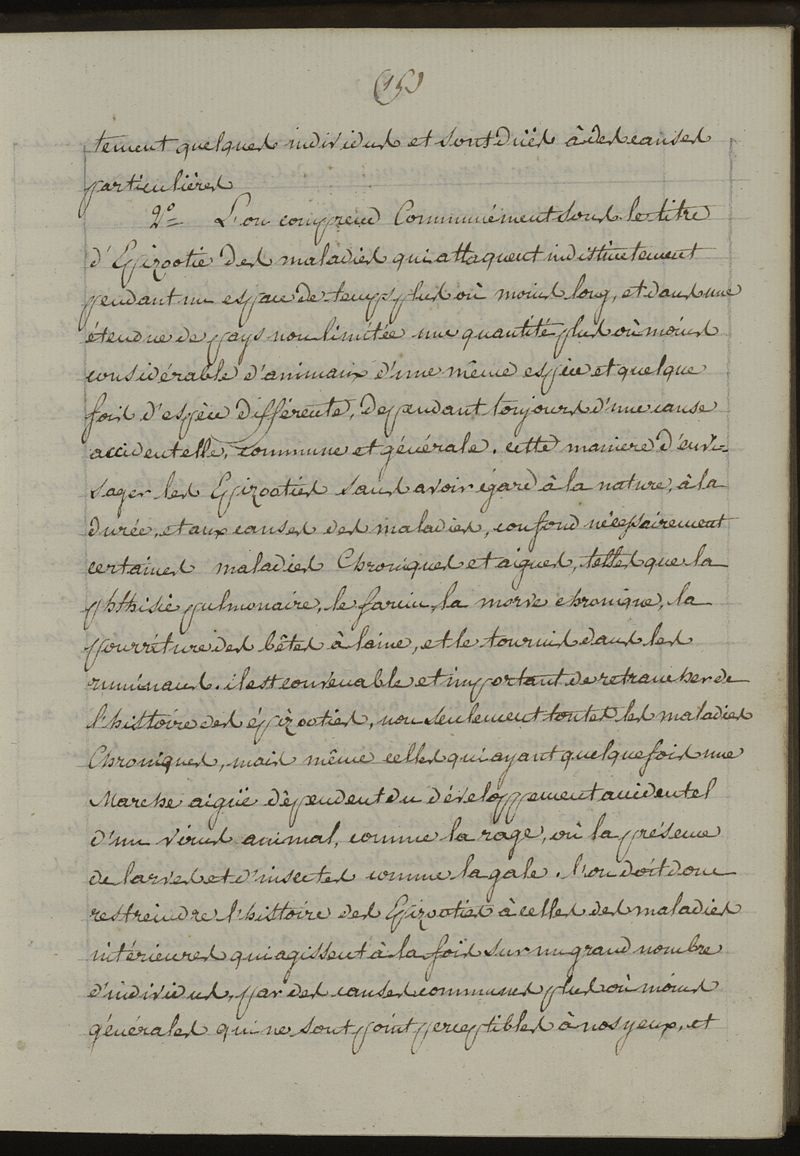 (15)
tement quelques individus et sont dües à des causes
particulières
2º= L'on comprend Communément sous le titre
d'Epizootie des maladies qui attaquent indistinctement
pendant un espace de temps plus où moins long, et dans une
étendue de pays non limitée une quantité plus où moins
considérable d'animaux d'une même espèce et quelque
fois d'espèce différente, dependant toujours d'une cause
accidentelle, commune et générale. cette maniere d'envi-
sager les Epizooties sans avoir égard à la nature, à la
durée, et aux causes des maladies, confond nécessairement
certaines maladies Chroniques et aigues, telles que la
phthisie pulmonaire, le farcin, la morve chronique, la
pourriture des bêtes à laine, et le tournis dans les
ruminans. il est convenable et important de retrancher de
l'histoire des épizooties, non seulement toutes les maladies
Chroniques, mais même celles qui ayant quelque fois une
Marche aigüe dèpendent du développement accidentel
d'un virus animal, comme la rage, où la présence
de larves et d'insectes comme la gale. l'on doit donc
restreindre l'histoire des Epizooties à celles des maladies
intérieures qui agissent à la fois sur un grand nombre
d'individus, par des causes communes plus où moins
générales qui ne sont point perceptibles à nos yeux, et